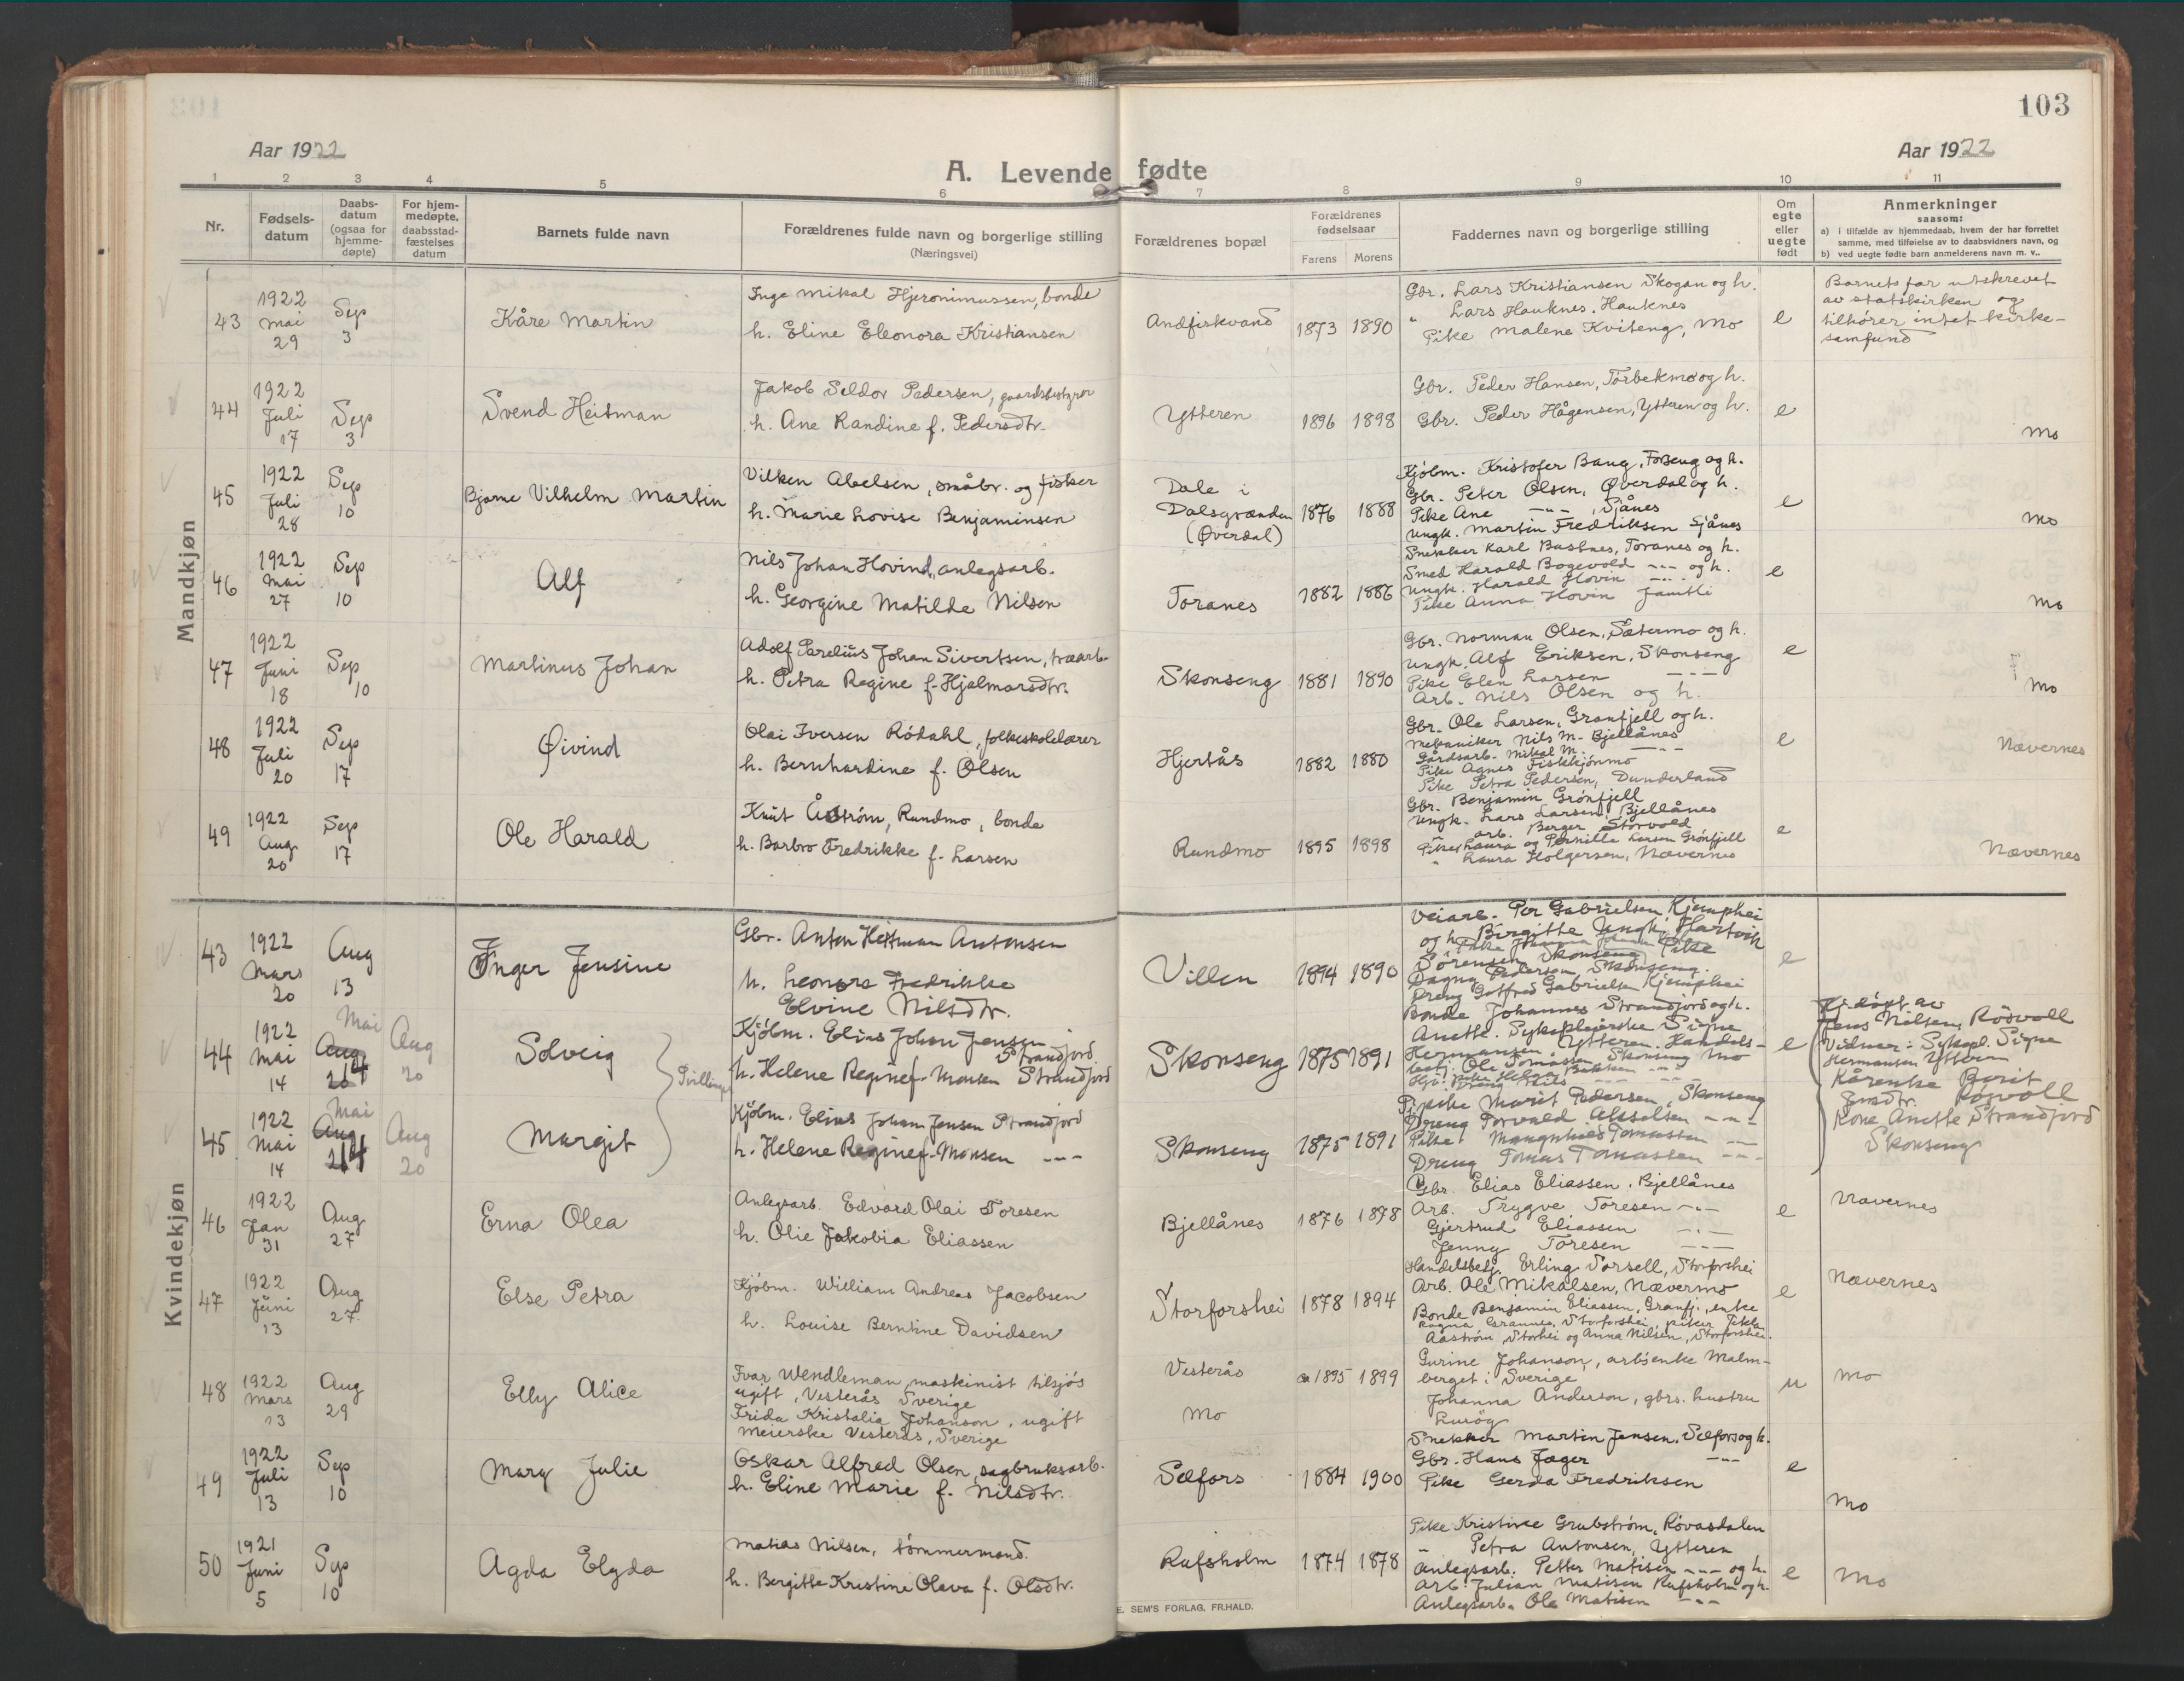 103
Aar 1922
Aar 1922
A. Levende fødte
1 2 3 4 5 6 7 8 9 10 11
Nr.
Fødsels-
datum
Daabs-
datum
(ogsaa for
hjemme-
døpte)
For hjem-
medøpte,
daabsstad-
fæstelses
datum
Barnets fulde navn
Forældrenes fulde navn og borgerlige stilling
(Næringsvei)
Forældrenes bopæl
Forældrenes
fødselsaar
Farens Morens
Faddernes navn og borgerlige stilling
Om
egte
eller
uegte
født
Anmerkninger
saasom:
a) i tilfælde av hjemmedaab, hvem der har forrettet
samme, med tilføielse av to daabsvidners navn, og
b) ved uegte fødte barn anmelderens navn m. v..
Mandkjøn
43
1922
Mai
29
Sep
3
Kåre Martin
Inge Mikal Hjeronimussen, bonde
h. Eline Eleonora Kristiansen
Andfiskvand
1873 1890
Gbr. Lars Kristiansen Skogan og h.
" Lars Hauknes. Hauknes
Pike Malene Kviteng, Mo
e
Barnets far utskrevet
av statskirken og
tilhører intet kirke-
samfund
44
1922
Juli
17
Sep
3
Svend Heitman
Jakob Seldor Pedersen, gaardsbestyrer
h. Ane Randine f. Pedersdtr.
Ytteren
1896 1898
Gbr. Peder Hansen, Torbekmo og h.
Gbr. Peder Hågensen, Ytteren og h.
e
Mo
45
1922
Juli
28
Sep
10
Bjarne Vilhelm Martin
Vilken Abelsen, småbr. og fisker
h. Marie Lovise Benjaminsen
Dale i
Dalsgrænden
(Øverdal)
1876 1888
Kjøbm. Kristofer Bang, Forseng og h.
Gbr. Peter Olsen, Øverdal og h.
Pike Ane -"- , Sjånes
Ungk. Martin Fredriksen Sjånes
e
Mo
46
1922
Mai
27
Sep
10
Alf
Nils Johan Hovind, anlegsarb.
h. Georgine Matilde Nilsen
Toranes
1882 1886
Snekker Karl Bustnes, Toranes og h.
Smed Harald Bogevold -"- og h.
Ungk. Harald Hovin -"-
Pike Anna Hovin Jamtli
e
Mo
47
1922
Juni
18
Sep
10
Martinus Johan
Adolf Parelius Johan Sivertsen, træarb.
h. Petra Regine f. Hjalmarsdtr.
Skonseng
1881 1890
Gbr. Norman Olsen, Sætermo og h.
Ungk. Alf Eriksen, Skonseng
Pike Elen Larsen -"-
Arb. Nils Olsen og h.
e
Mo
48
1922
Juli
20
Sep
17
Øivind
Olai Iversen Rödahl, folkeskolelærer
h. Bernhardine f. Olsen
Hjertås
1882 1880
Gbr. Ole Larsen, Grönfjell og h.
Mekaniker Nils M. Bjellånes
Gårdsarb. Mikal M. -"-
Pike Agnes Fiskkjønmo
Pike Petra Pedersen, Dunderland
e
Nævernes
49
1922
Aug
20
Sep
17
Ole Harald
Knut Åström, Rundmo, bonde
h. Barbro Fredrikke f. Larsen
Rundmo
1895 1898
Gbr. Benjamin Grönfjell
Ungk. Lars Larsen, Bjellånes
" arb. Berger Storvold
Piker Laura og Pernille Larsen Grönfjell
" Laura Holgersen, Nævernes
e
Nævernes
Kvindekjøn
43
1922
Mars
20
Aug
13
Inger Jensine
Gbr. Anton Heitman Antonsen
h. Leonora Fredrikke
Elvine Nilsdtr.
Villen
1894 1890
Veiarb. Per Gabrielsen Kjemphei
og h. Birgitte Ungk. Hartvik
Sørensen Skonseng Pike
Dagny Pedersen, Skonseng.
Dreng Gotfred Gabrielsen Kjemphei
e
44
1922
Mai
14
Mai
14
Aug
20
Solveig
Tvillinger
Kjøbm. Elias Johan Jensen
Strandjord.
h. Helene Regine f. Monsen Strandjord
Skonseng
1875 1891
Bonde Johannes Strandjord og h.
Anette. Sykepleierske Signe
Hermansen Ytteren. Handels-
betj. Ole Tomassen, Skonseng Mo
e
Hj. døpt av
Jens Nilsen, Rösvoll
Vidner: Sykepl. Signe
Hermansen Ytteren
45
1922
Mai
14
Mai
14
Aug
20
Margit
Kjøbm. Elias Johan Jensen Strandjord
h. Helene Regine f. Monsen -"-
Skonseng
1875 1891
Pike Marit Pedersen, Skonseng
Dreng Torvald -"-
Pike Tomassen -"-
Dreng Tomas Tomassen -"-
Kårenke Berit
Rösvoll
Kone Anette Strandjord
Skonseng
46
1922
Jan
31
Aug
27
Erna Olea
Anlegsarb. Edvard Olai Toresen
h. Olie Jakobia Eliassen
Bjellånes
1876 1878
Gbr. Elias Eliassen, Bjellånes
Arb. Trygve Toresen -"-
Gjertrud Eliassen -"-
Jenny Toresen -"-
e
Nævernes
47
1922
Juni
13
Aug
27
Else Petra
Kjøbm. William Andreas Jacobsen
h. Louise Berntine Davidsen
Storforshei
1878 1894
Handelsbetj. Erling Sorsell, Storforshei
Arb. Ole Mikalsen, Nævermo
Bonde Benjamin Eliassen, Granfj., enke
Ragna Grannes, Storforshei, piker Tekla
Aaström, Storhei og Anna Nilsen, Storforshei.
e
Nævernes
48
1922
Mars
13
Aug
29
Elly Alice
Ivar Wendleman, maskinist tilsjøs
ugift, Vesterås Sverige
Frida Kristalia Johanson, ugift
meierske Vesterås, Sverige
Vesterås
Mo
ca 1895 1899
Gurine Johanson, arbsenke Malm-
berget i Sverige
Johanna Anderson, gbrs. hustru
Lusög
u
Mo
49
1922
Juli
13
Sep
10
Mary Julie
Oskar Alfred Olsen, sagbruksarb.
h. Eline Marie f. Nilsdtr.
Selfors
1884 1900
Snekker Martin Jensen, Selfors og h.
Gbr. Hans Jæger -"-
Pike Gerda Fredriksen
e
Mo
50
1921
Juni
5
Sep
10
Agda Elgda
Matias Nilsen, tømmermand.
h. Bergitte Kristine Olava f. Olsdtr.
Rufsholm
1874 1878
Pike Kristine Grubström, Rövasdalen
" Petra Antonsen, Ytteren
Anlegsarb. Petter Matisen -"- og h.
Arb. Julian Matisen Rufsholm og h.
Anlegsarb. Ole Matisen -"-
e
Mo
E. SEM'S FORLAG, FR.HALD.